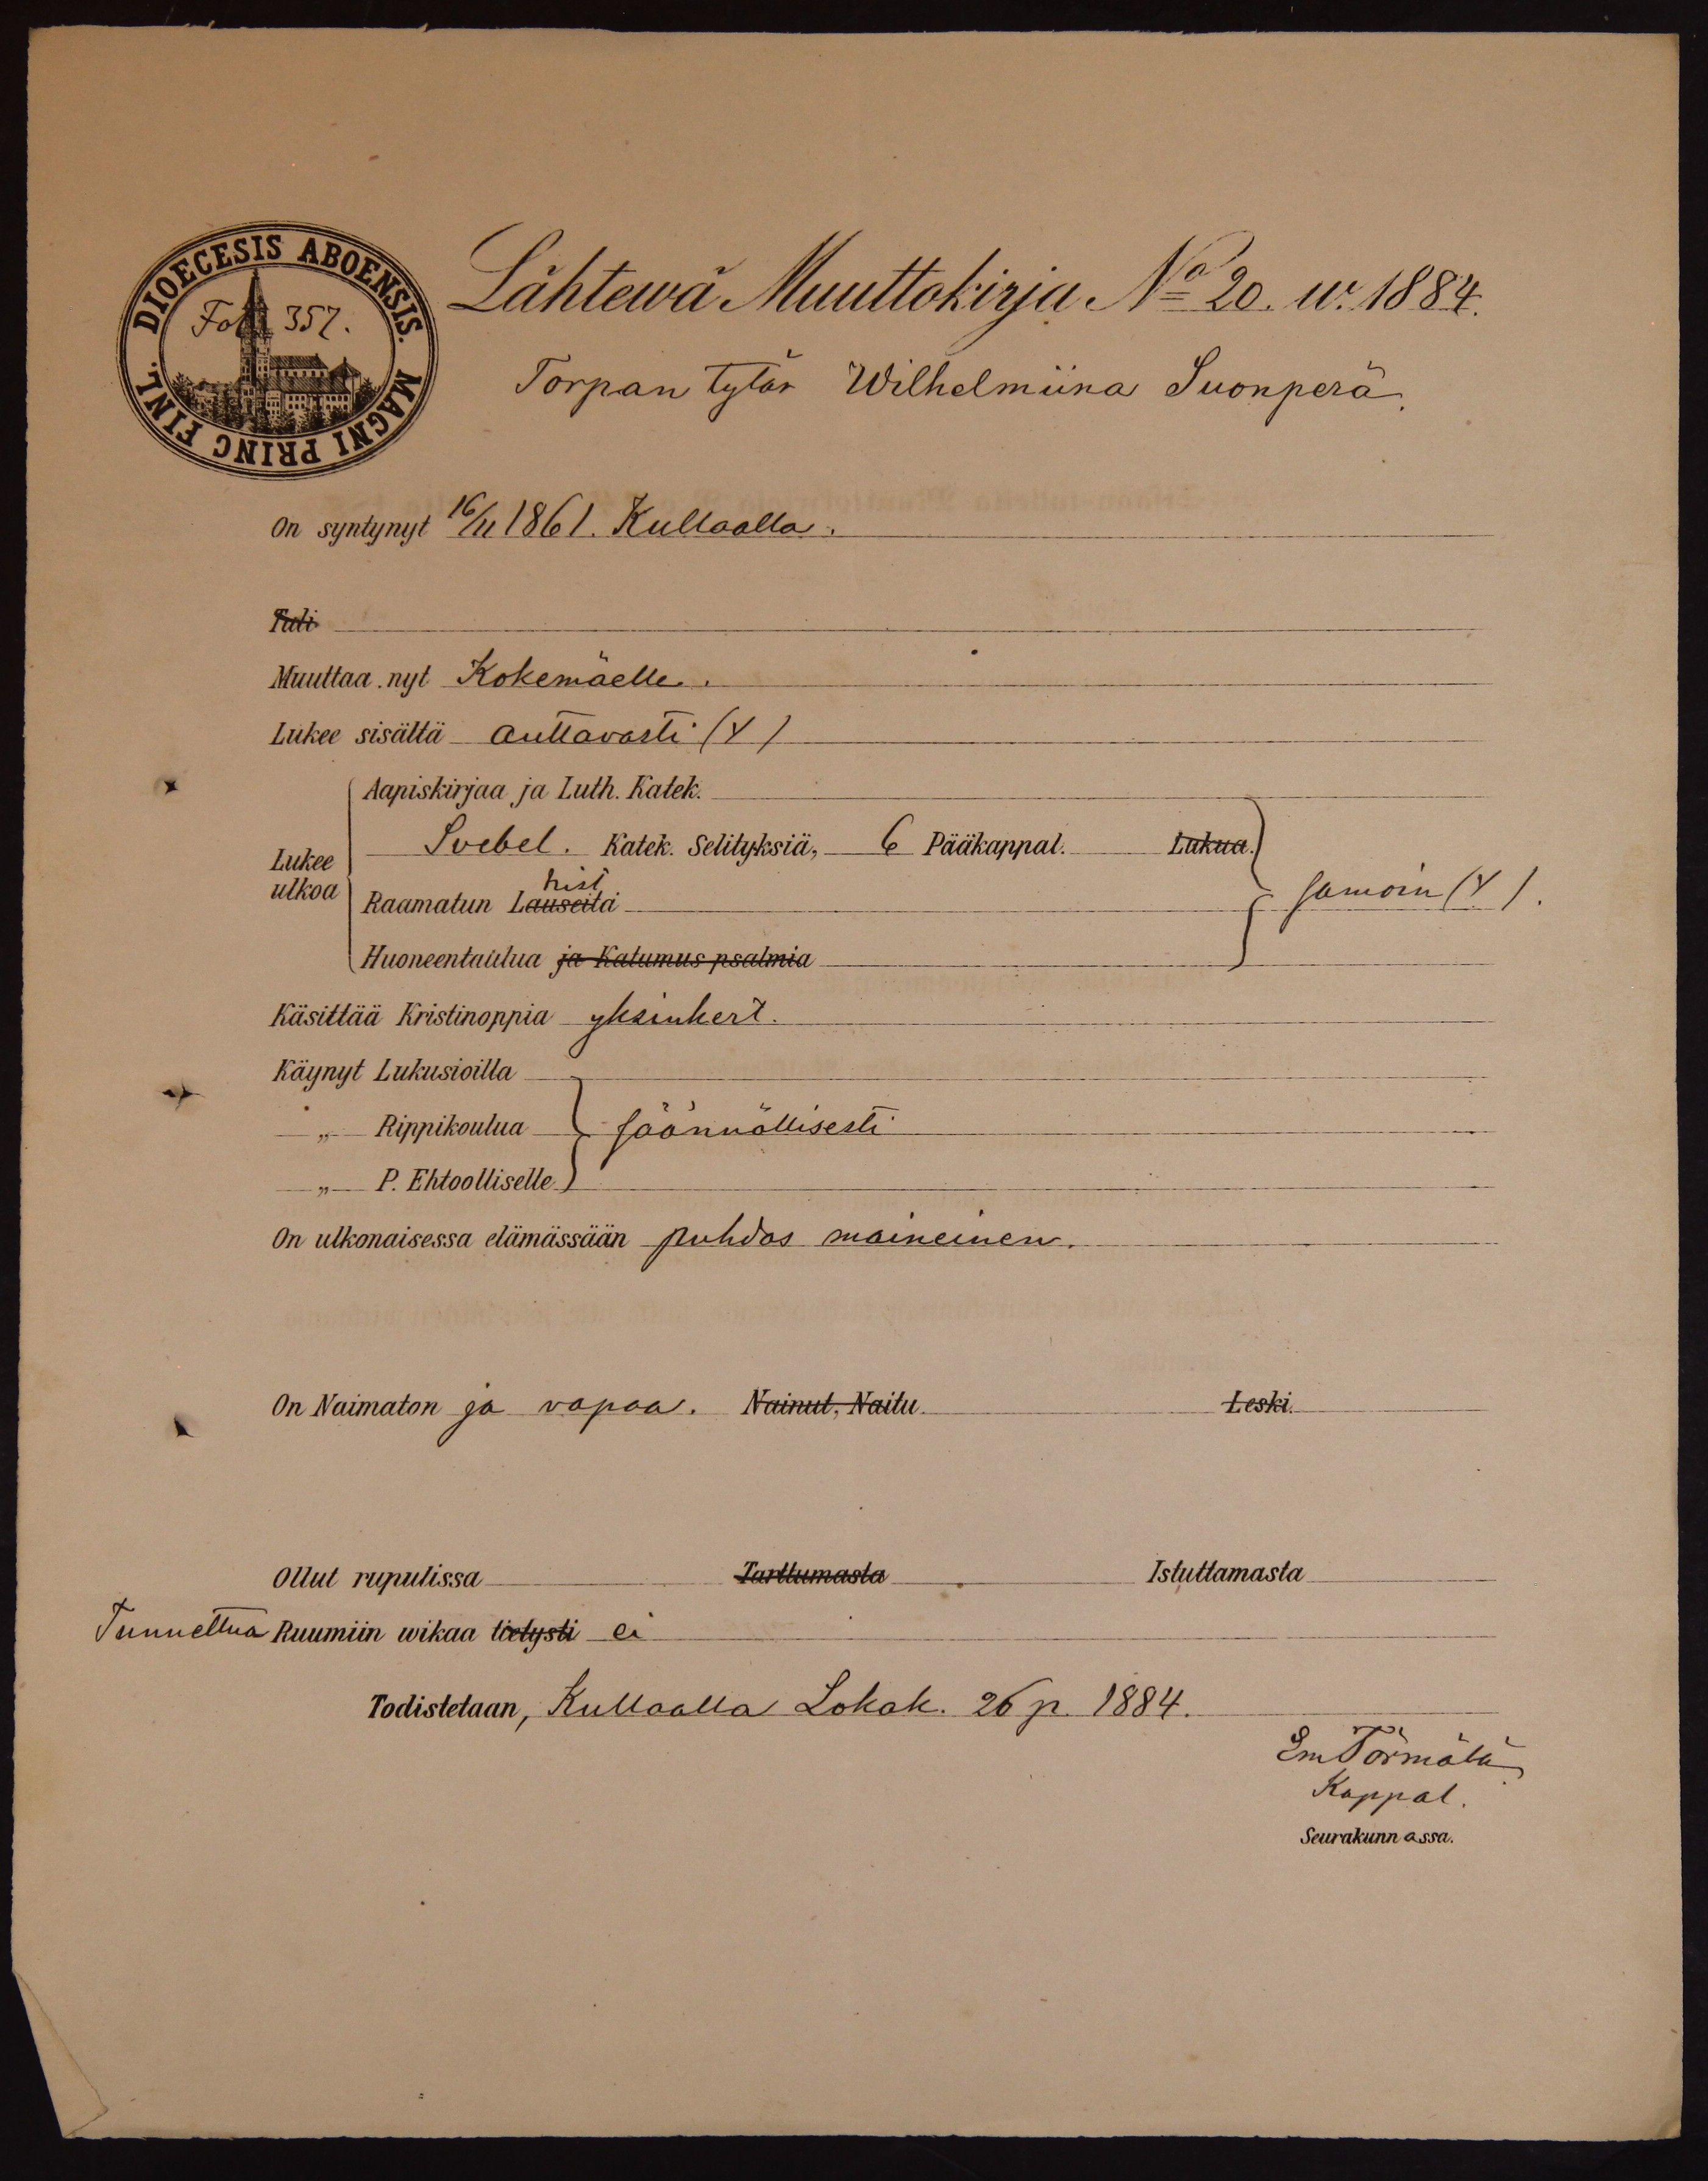 DIOECESIS ABOENSIS. MAGNI PRINC FINL.
Fol. 357.
Lähtewä Muuttokirja No 20. w. 1884.
Torpan tytär Wilhelmiina Suonperä.
On syntynyt 16/11 1861. Kullaalla.
Tuli
Muuttaa nyt Kokemäelle.
Lukee sisältä auttavasti (Y)
Aapiskirjaa ja Luth. Katek.
Lukee ulkoa
Svebel. Katek. Selityksiä, 6 Pääkappal. Lukua.
hist
Raamatun Lauseita
samoin (Y).
Huoneentaulua ja Katumus psalmia
Käsittää Kristinoppia yksinkert.
Käynyt Lukusioilla
„ Rippikoulua säännöllisesti
„ P. Ehtoolliselle
On ulkonaisessa elämässään puhdas maineinen.
On Naimaton ja vapaa. Nainut, Naitu Leski.
Ollut rupulissa Tarttumasta Istuttamasta
Tunnettua Ruumiin wikaa tietysti ei
Todistetaan, Kullaalla Lokak. 26 p. 1884.
Em Törmälä
Kappal.
Seurakunnassa.